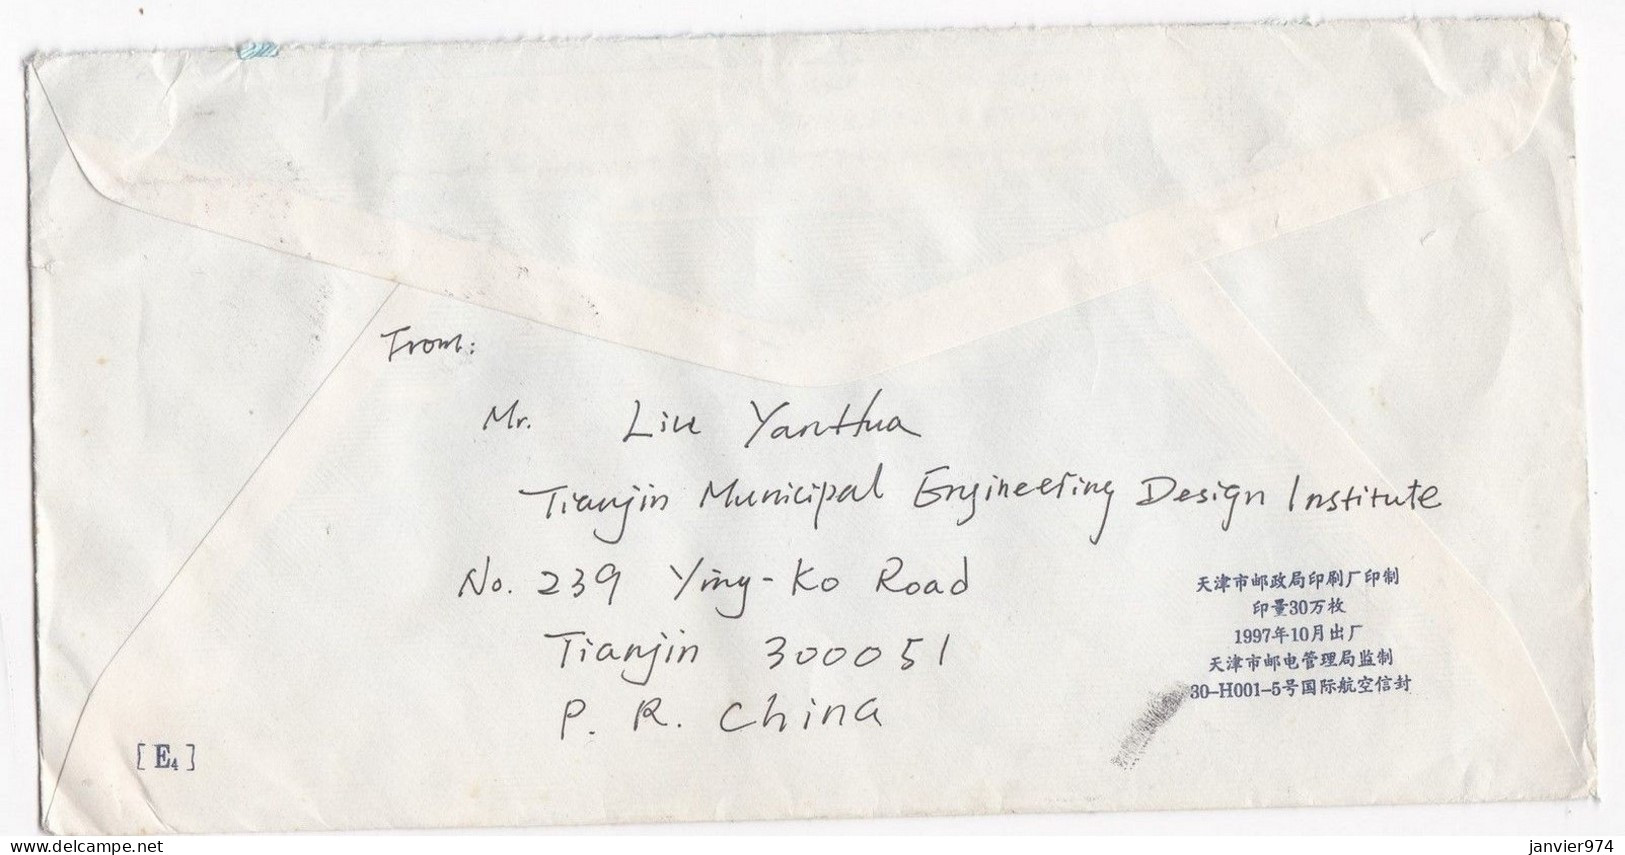 From:
Mr. Liu YanHua
Tianjin Municipal Engineering Design Institute
No. 239 Ying-Ko Road
Tianjin 300051
P. R. China
天津市邮政局印刷厂印制
印量30万枚
1997年10月出厂
天津市邮电管理局监制
30-H001-5号国际航空信封
[E4]
delcampe.net
janvier974